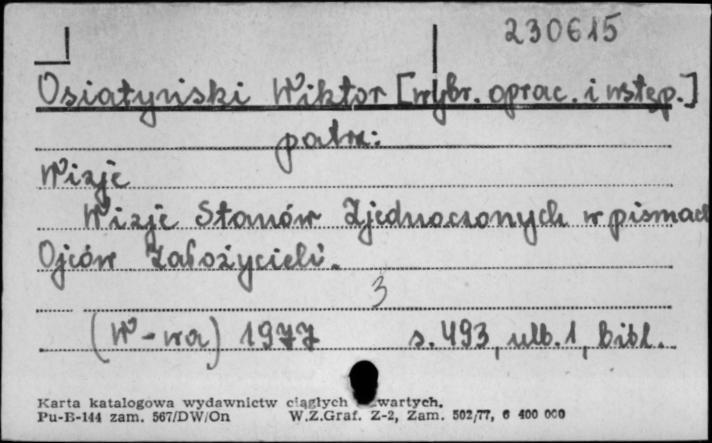 230615
Osiatyński Wiktor [wybr. oprac. i wstęp.]
patrz:
Wizje
Wizje Stanów Zjednoczonych w pismach
Ojców Założycieli.
3
(W-wa) 1977 s. 493, nlb. 1, bibl.
Karta katalogowa wydawnictw ciągłych wartych.
Pu-B-144 zam. 567/DW/On W.Z.Graf. Z-2, Zam. 502/77, 6 400 000